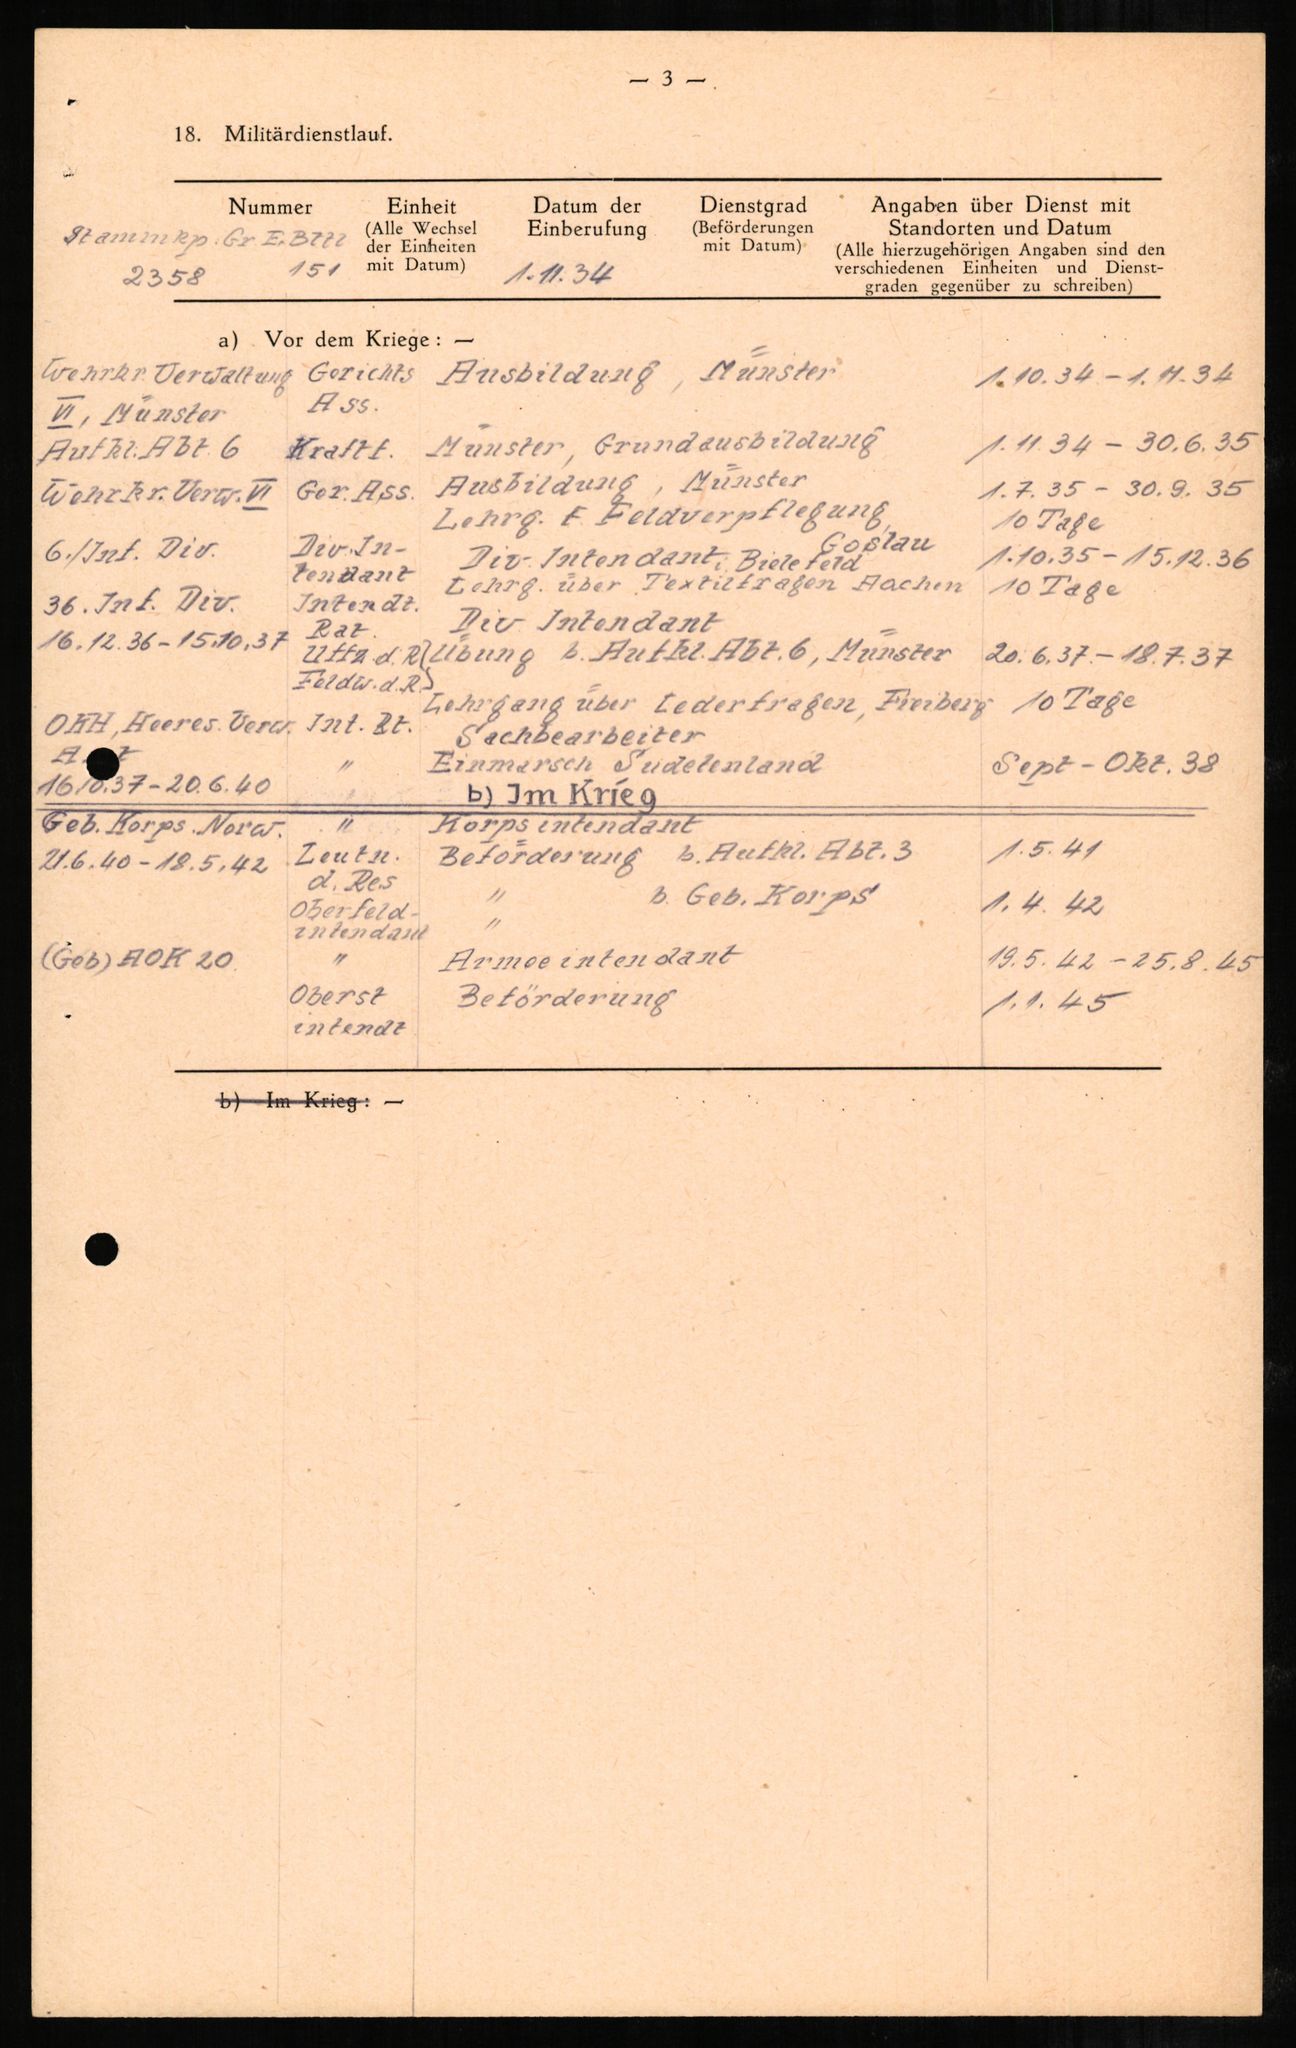 — 3 —
18. Militärdienstlauf.
Nummer Einheit Datum der Dienstgrad Angaben über Dienst mit
(Alle Wechsel Einberufung (Beförderungen Standorten und Datum
der Einheiten mit Datum) (Alle hierzugehörigen Angaben sind den
mit Datum) verschiedenen Einheiten und Dienst-
graden gegenüber zu schreiben)
Stammkp. Gr. E. Btl
2358 151 1.11.34
a) Vor dem Kriege: —
Wehrkr. Verwaltung Gerichts Ausbildung, Münster 1.10.34 – 1.11.34
VI, Münster Ass.
Aufkl. Abt. 6 Kraftf. Münster, Grundausbildung 1.11.34 – 30.6.35
Wehrkr. Verw. VI Ger. Ass. Ausbildung, Münster 1.7.35 – 30.9.35
Lehrg. f. Feldverpflegung, 10 Tage
Goslau
6./Inf. Div. Div. In- Div. Intendant, Bielefeld 1.10.35 – 15.12.36
tendant Lehrg. über Textilfragen Aachen 10 Tage
36. Inf. Div. Intendt. Div Intendant
16.12.36 – 15.10.37 Rat.
Uffz. d. R. Übung b. Aufkl. Abt. 6, Münster 20.6.37 – 18.7.37
Feldw. d. R.
Lehrgang über Lederfragen, Freiberg 10 Tage
OKH, Heeres. Verw. Int. Rt. Sachbearbeiter
" Einmarsch Sudetenland Sept – Okt. 38
16.10.37 – 20.6.40
b) Im Krieg
Geb. Korps. Norw. " Korpsintendant
21.6.40 – 18.5.42 Leutn. Beförderung b. Aufkl. Abt. 3 1.5.41
d. Res
Oberfeld- " b. Geb. Korps 1.4.42
intendant "
(Geb) AOK 20 " Armeeintendant 19.5.42 – 25.8.45
Oberst Beförderung 1.1.45
intendt
b) Im Krieg: —